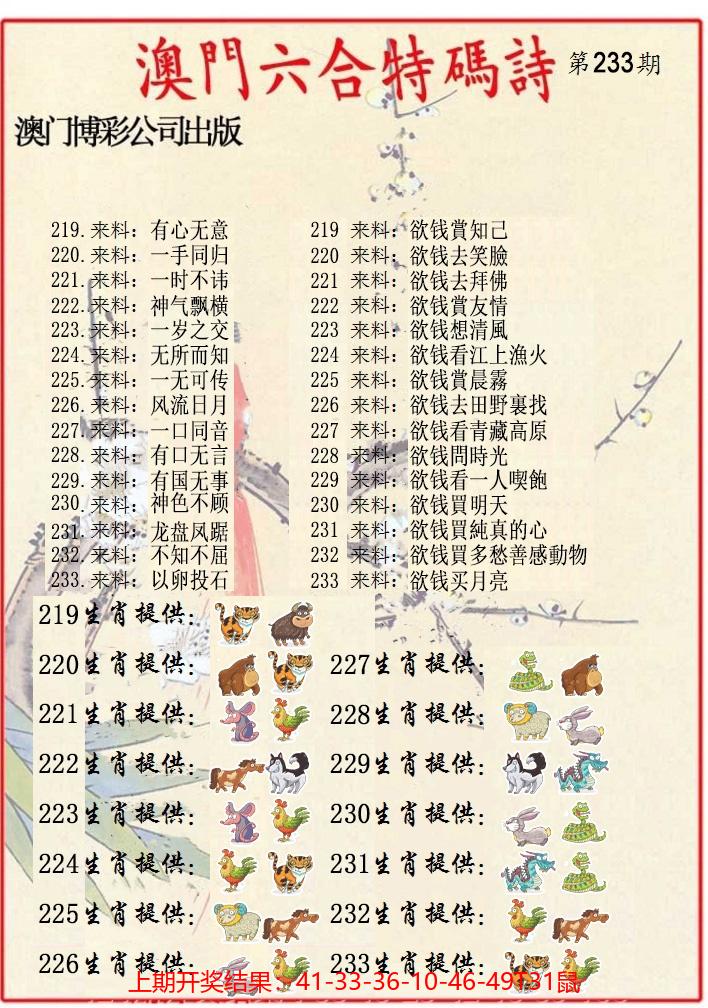 澳門六合特碼詩 第233期
澳门博彩公司出版
219.来料：有心无意
220.来料：一手同归
221.来料：一时不讳
222.来料：神气飘横
223.来料：一岁之交
224.来料：无所而知
225.来料：一无可传
226.来料：风流日月
227.来料：一口同音
228.来料：有口无言
229.来料：有国无事
230.来料：神色不顾
231.来料：龙盘凤踞
232.来料：不知不屈
233.来料：以卵投石
219 来料：欲钱賞知己
220 来料：欲钱去笑臉
221 来料：欲钱去拜佛
222 来料：欲钱賞友情
223 来料：欲钱想清風
224 来料：欲钱看江上漁火
225 来料：欲钱賞晨霧
226 来料：欲钱去田野裏找
227 来料：欲钱看青藏高原
228 来料：欲钱問時光
229 来料：欲钱看一人喫飽
230 来料：欲钱買明天
231 来料：欲钱買純真的心
232 来料：欲钱買多愁善感動物
233 来料：欲钱买月亮
219生肖提供：
220生肖提供：
221生肖提供：
222生肖提供：
223生肖提供：
224生肖提供：
225生肖提供：
226生肖提供：
227生肖提供：
228生肖提供：
229生肖提供：
230生肖提供：
231生肖提供：
232生肖提供：
233生肖提供：
上期开奖结果：41-33-36-10-46-49T31鼠